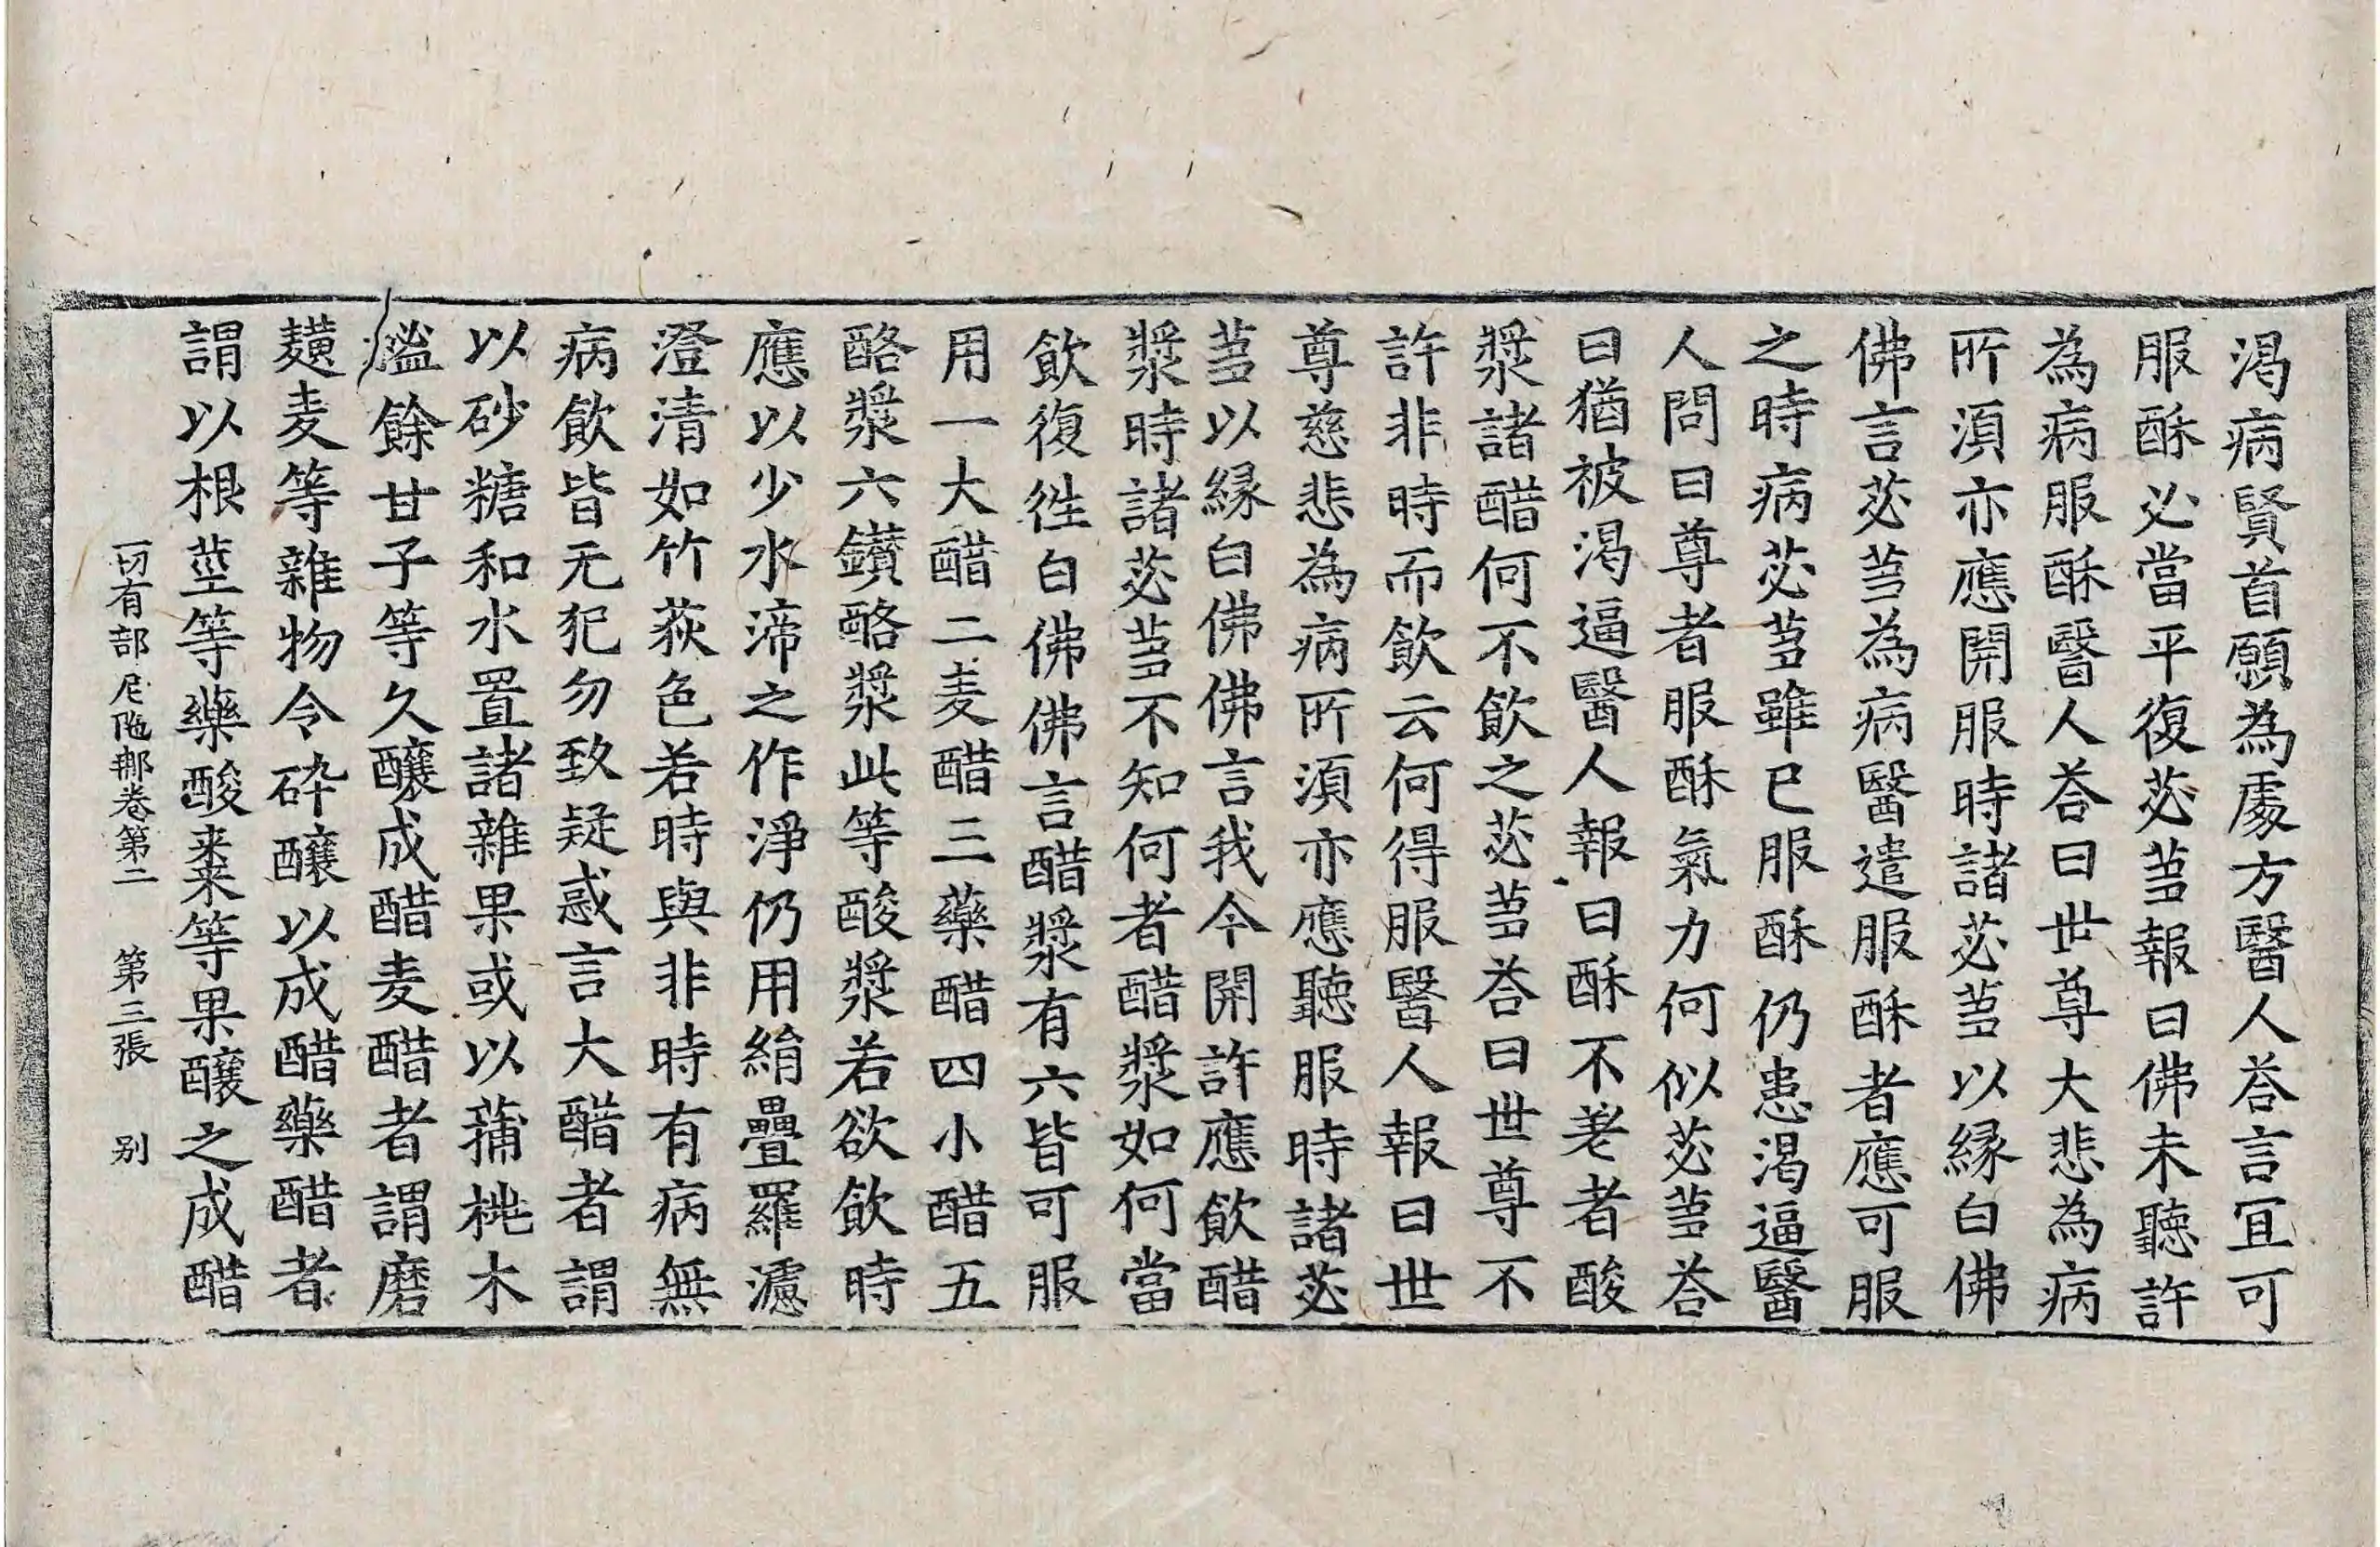 渴病賢首願為處方醫人荅言冝可
服酥必當平復苾芻報曰佛未聽許
為病服酥醫人荅曰世尊大悲為病
所湏亦應開服時諸苾芻以緣白佛
佛言苾芻為病醫遣服酥者應可服
之時病苾芻雖已服酥仍患渴逼醫
人問曰尊者服酥氣力何似苾芻荅
曰猶被渴逼醫人報曰酥不差者酸
漿諸醋何不飲之苾芻荅曰世尊不
許非時而飲云何得服醫人報曰世
尊慈悲為病所湏亦應聽服時諸苾
芻以緣白佛佛言我今開許應飲醋
漿時諸苾芻不知何者醋漿如何當
飲復徃白佛佛言醋漿有六皆可服
用一大醋二麦醋三藥醋四小醋五
酪漿六鑚酪漿此等酸漿若欲飲時
應以少水渧之作淨仍用絹疊羅濾
澄清如竹荻色若時與非時有病無
病飲皆无犯勿致疑惑言大醋者謂
以砂糖和水置諸雜果或以蒱桃木
㯿餘甘子等久釀成醋麦醋者謂磨
䵃麦等雜物令碎釀以成醋藥醋者
謂以根莖等藥酸来等果釀之成醋
一切有部尼陁那卷第二　第三張　别